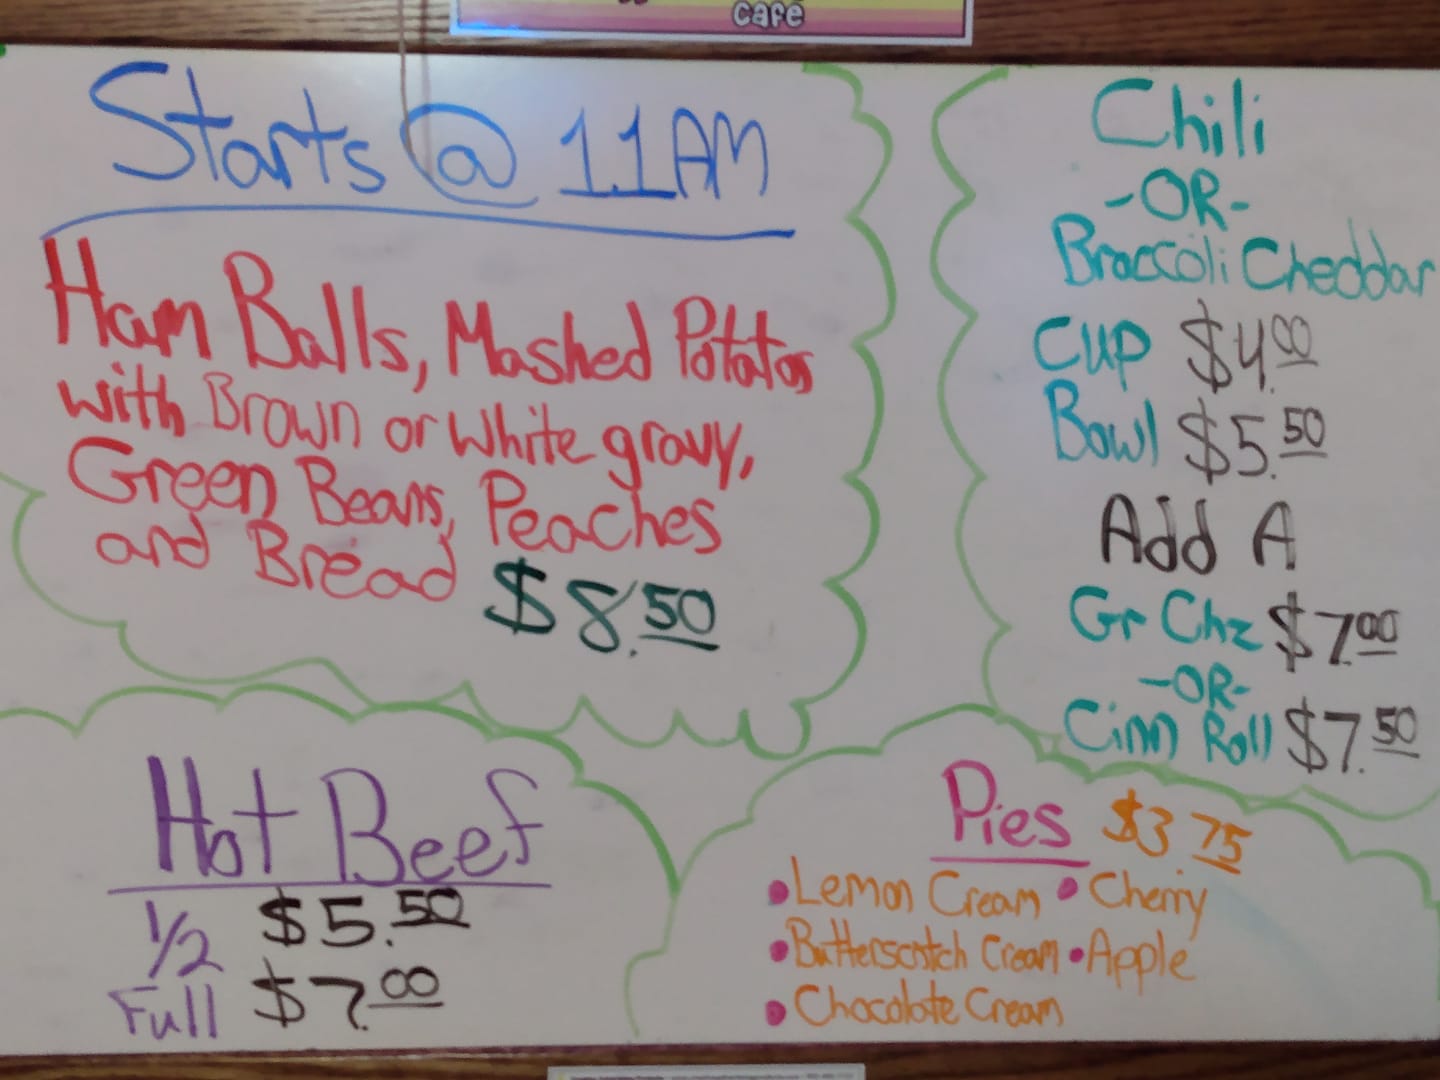 cafe
Starts @ 11AM
Ham Balls, Mashed Potatos
with Brown or White gravy,
Green Beans, Peaches
and Bread $8.50
Chili
-OR-
Broccoli Cheddar
Cup $4.00
Bowl $5.50
Add A
Gr Chz $7.00
-OR-
Cinn Roll $7.50
Hot Beef
1/2 $5.50
Full $7.00
Pies $3.75
• Lemon Cream • Cherry
• Butterscotch Cream • Apple
• Chocolate Cream